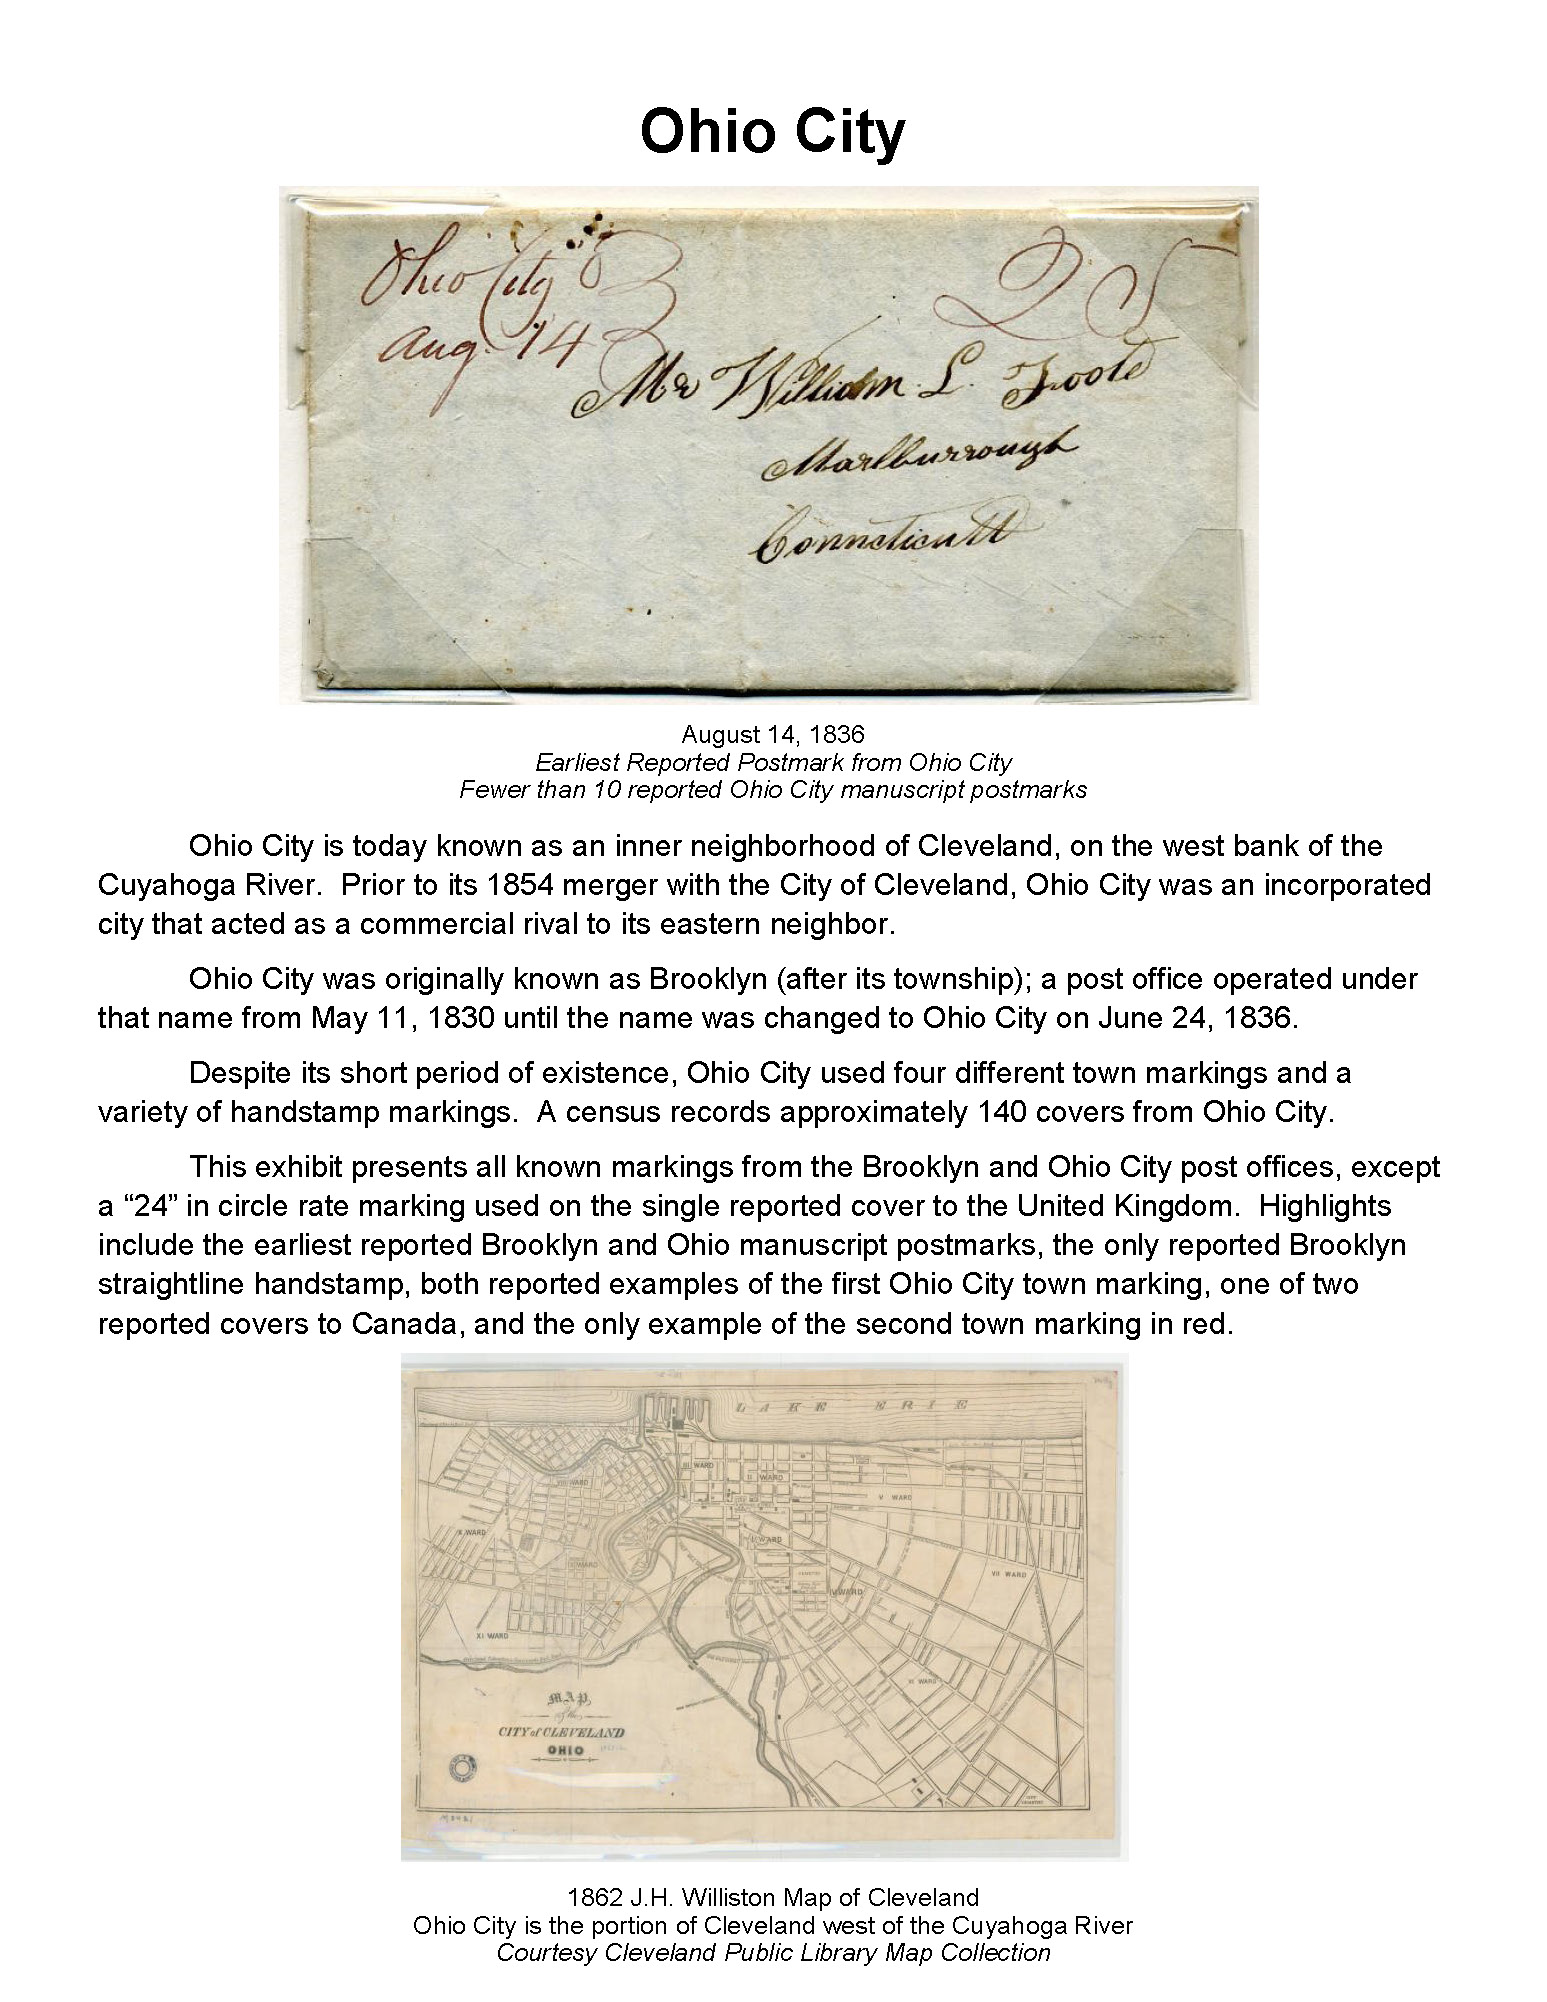 Ohio City
Ohio City
Aug. 14
25
Mr William L. Foote
Marlburrough
Connecticutt
August 14, 1836
Earliest Reported Postmark from Ohio City
Fewer than 10 reported Ohio City manuscript postmarks
Ohio City is today known as an inner neighborhood of Cleveland, on the west bank of the
Cuyahoga River.  Prior to its 1854 merger with the City of Cleveland, Ohio City was an incorporated
city that acted as a commercial rival to its eastern neighbor.
Ohio City was originally known as Brooklyn (after its township); a post office operated under
that name from May 11, 1830 until the name was changed to Ohio City on June 24, 1836.
Despite its short period of existence, Ohio City used four different town markings and a
variety of handstamp markings.  A census records approximately 140 covers from Ohio City.
This exhibit presents all known markings from the Brooklyn and Ohio City post offices, except
a “24” in circle rate marking used on the single reported cover to the United Kingdom.  Highlights
include the earliest reported Brooklyn and Ohio manuscript postmarks, the only reported Brooklyn
straightline handstamp, both reported examples of the first Ohio City town marking, one of two
reported covers to Canada, and the only example of the second town marking in red.
LAKE ERIE
III WARD
II WARD
VIII WARD
V WARD
X WARD
I WARD
WARD
VII WARD
IV WARD
XI WARD
VI WARD
MAP
of the
CITY of CLEVELAND
OHIO
CITY CEMETERY
1862 J.H. Williston Map of Cleveland
Ohio City is the portion of Cleveland west of the Cuyahoga River
Courtesy Cleveland Public Library Map Collection